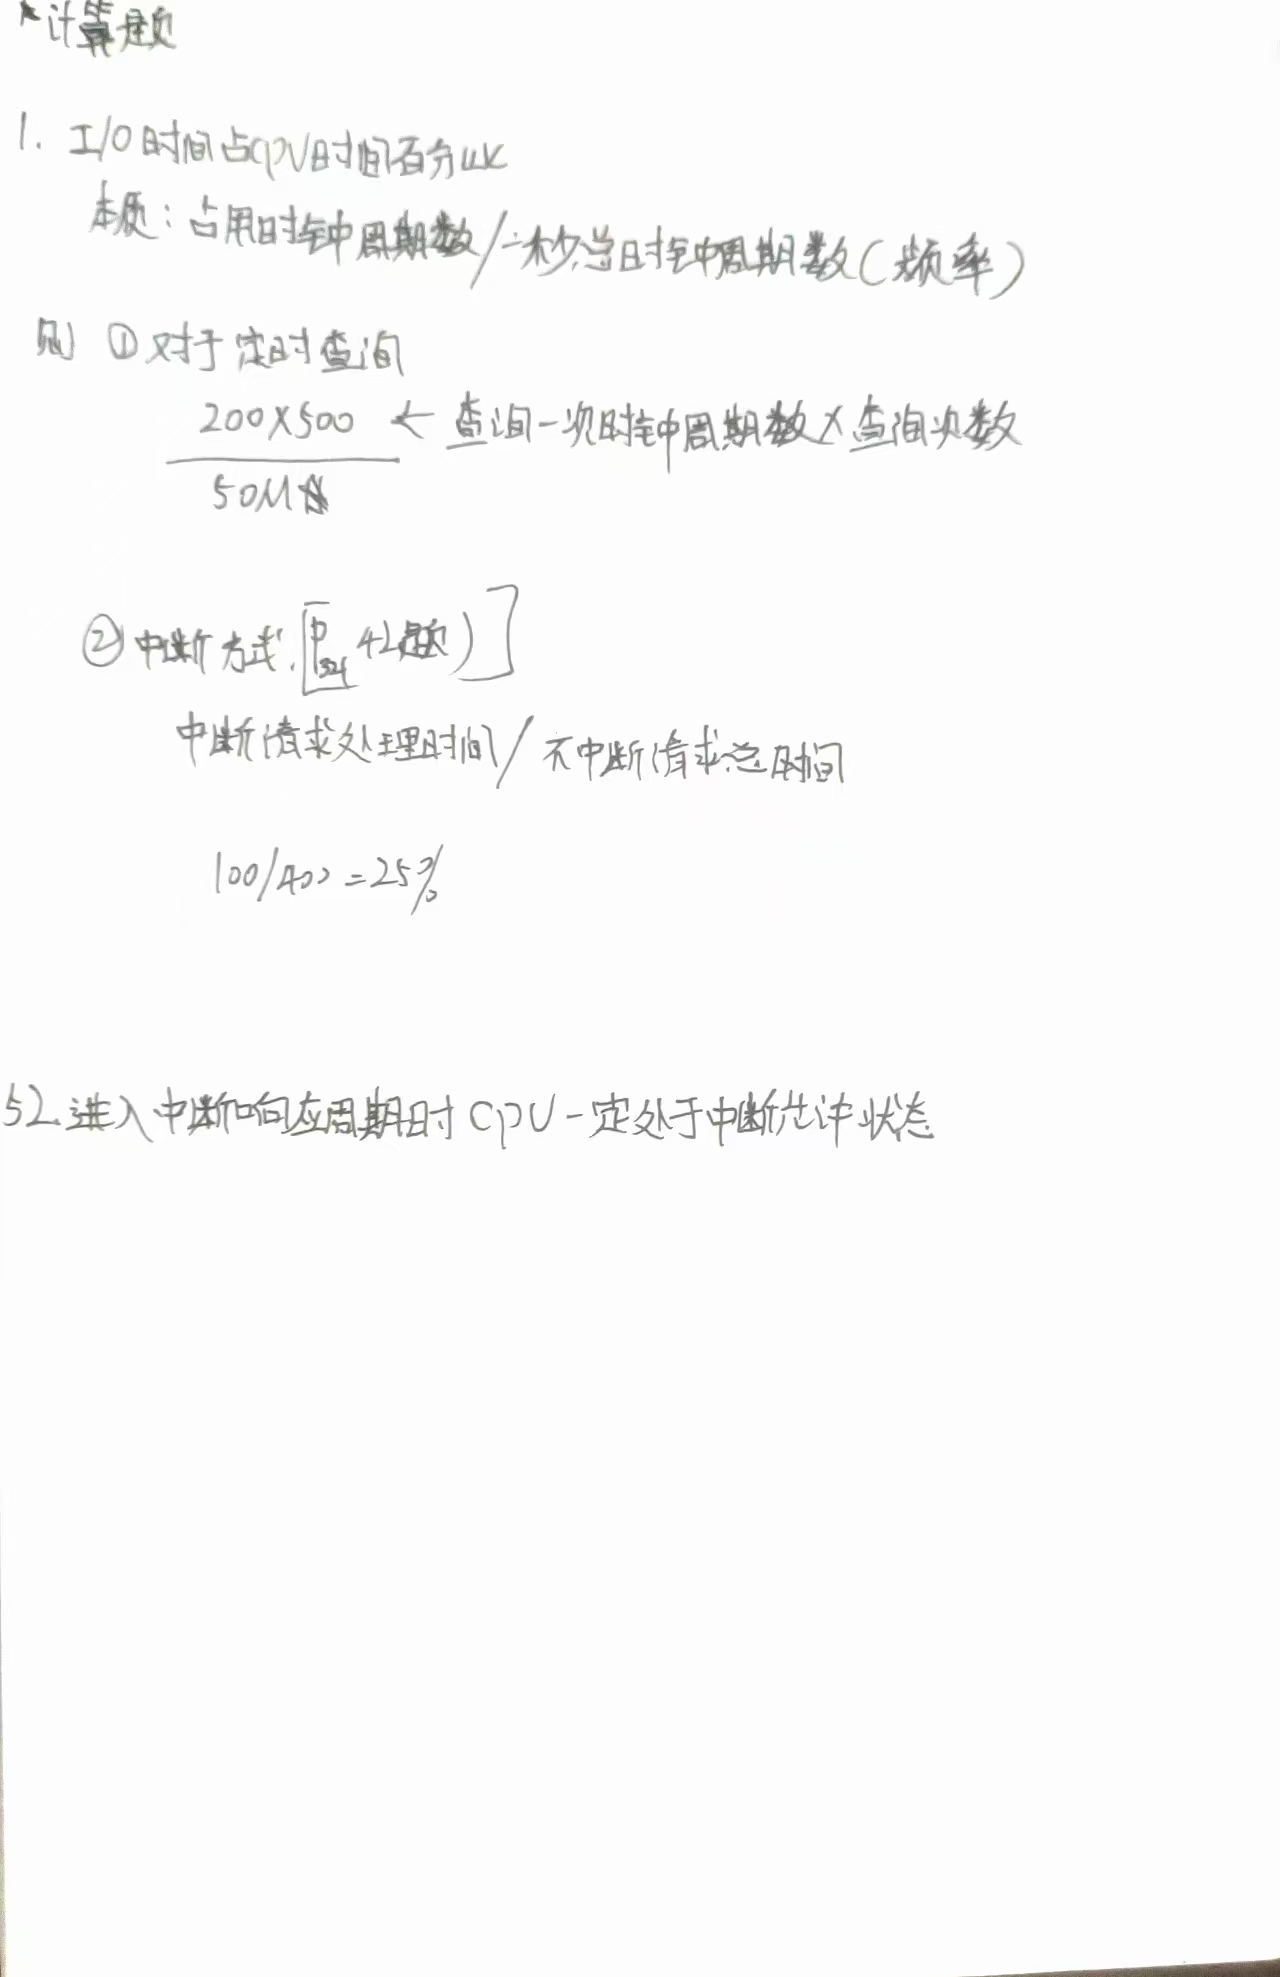 *计算题
1. I/O时间占CPU时间百分比
本质：占用时钟周期数/一秒总时钟周期数(频率)
则 ①对于定时查询
200×500 ← 查询一次时钟周期数×查询次数
50M
②中断方式. [P324 42题)]
中断请求处理时间/不中断请求总时间
100/400=25%
52.进入中断响应周期时CPU一定处于中断允许状态